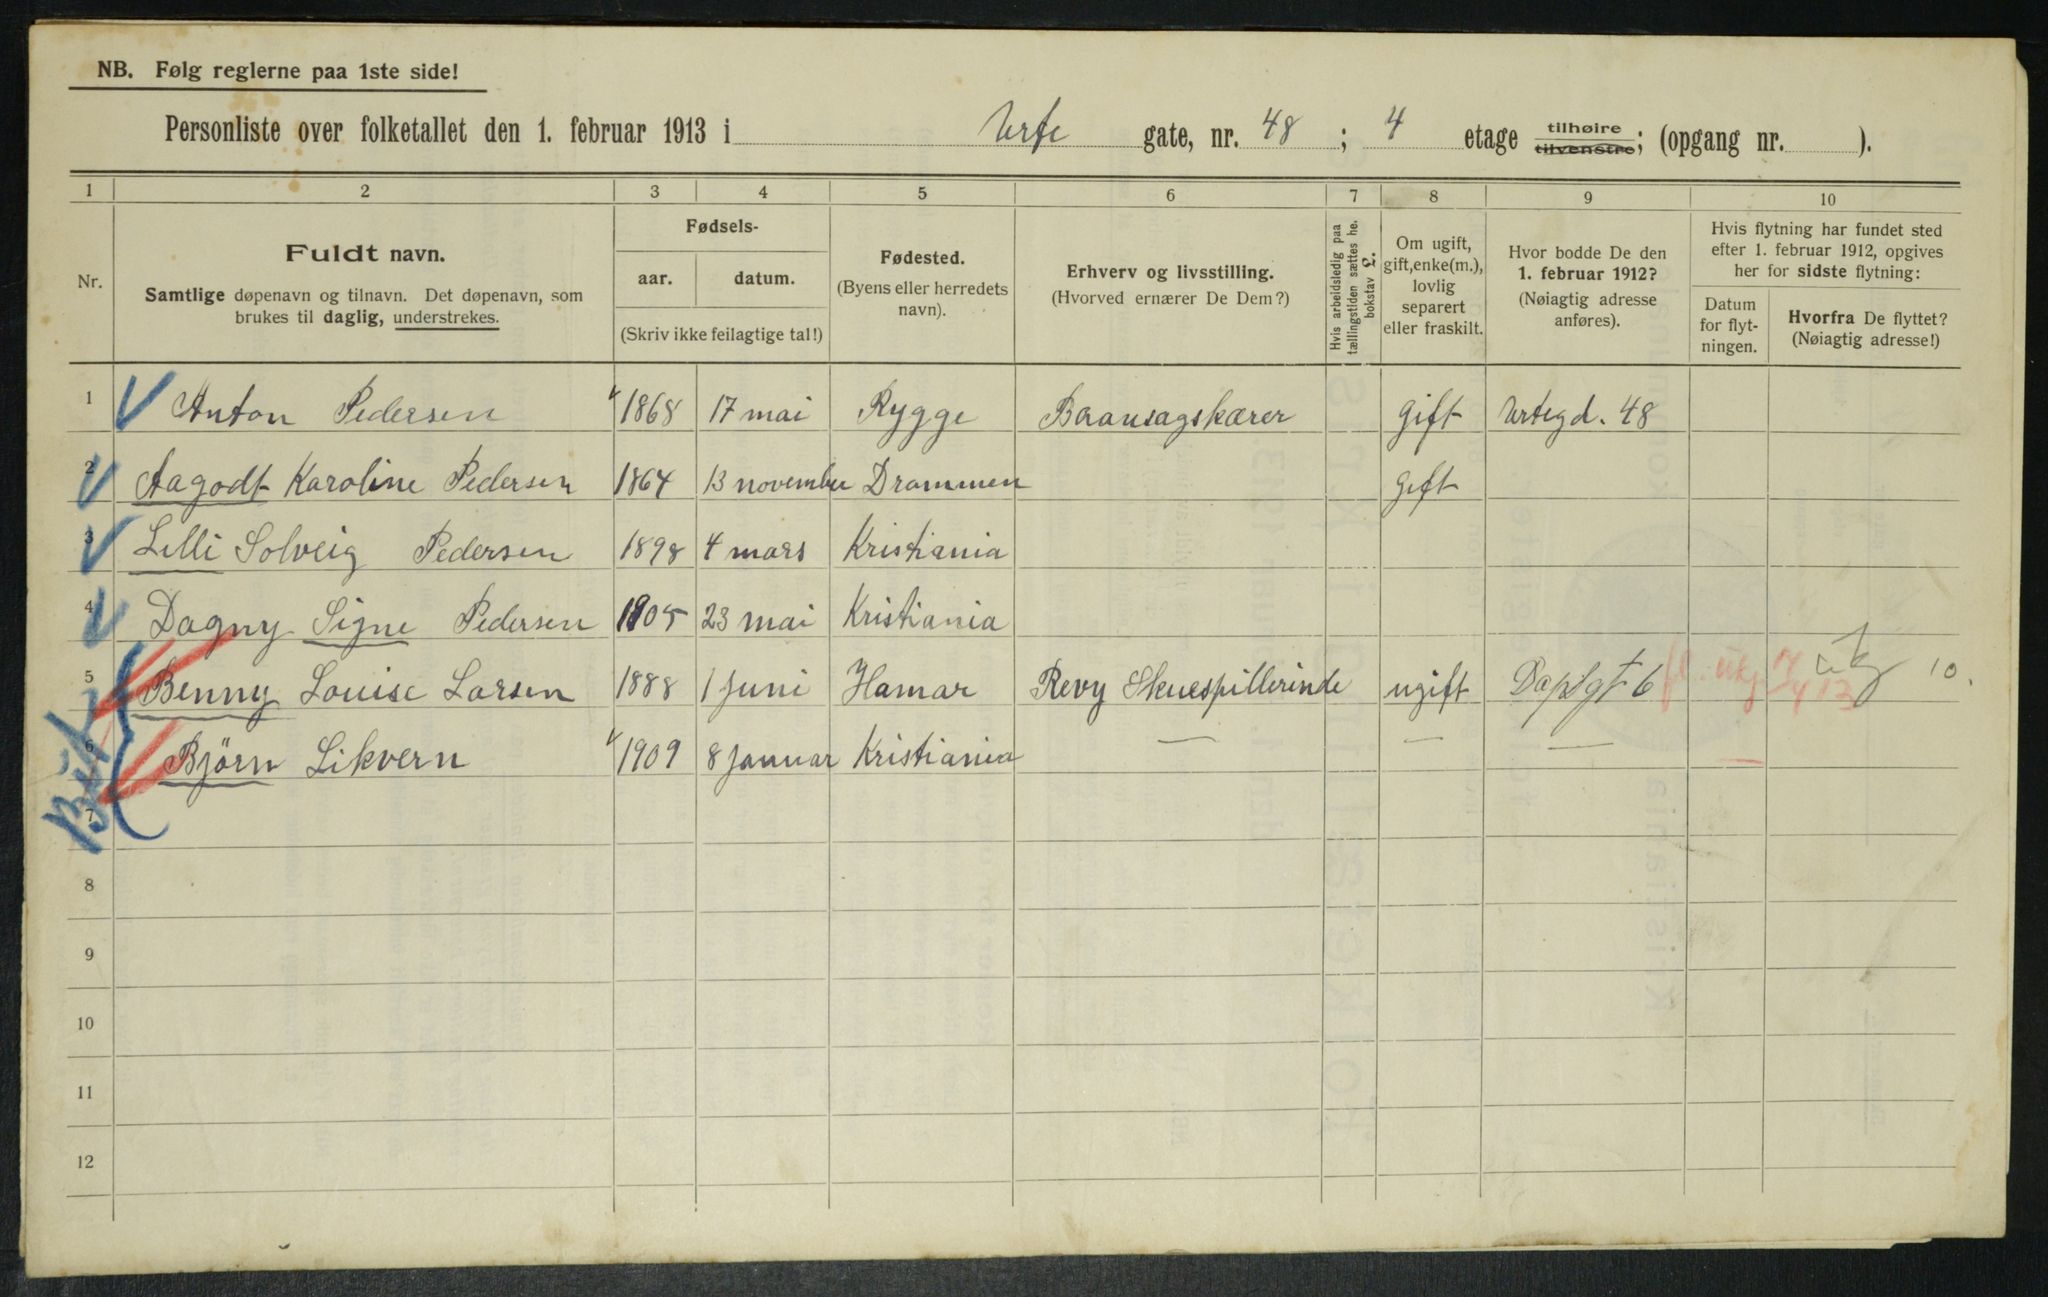 NB. Følg reglerne paa 1ste side!
Personliste over folketallet den 1. februar 1913 i Urte gate, nr. 48 ; 4 etage tilhøire tilvenstre; (opgang nr. ).
1 2 3 4 5 6 7 8 9 10
Nr.
Fuldt navn.
Samtlige døpenavn og tilnavn. Det døpenavn, som
brukes til daglig, understrekes.
Fødsels-
aar. datum.
(Skriv ikke feilagtige tal!)
Fødested.
(Byens eller herredets
navn).
Erhverv og livsstilling.
(Hvorved ernærer De Dem?)
Hvis arbeidsledig paa
tællingstiden sættes her
bokstav L.
Om ugift,
gift, enke(m.),
lovlig
separert
eller fraskilt.
Hvor bodde De den
1. februar 1912?
(Nøiagtig adresse
anføres).
Hvis flytning har fundet sted
efter 1. februar 1912, opgives
her for sidste flytning:
Datum
for flyt-
ningen.
Hvorfra De flyttet?
(Nøiagtig adresse!)
1 Anton Pedersen 1868 17 mai Rygge Baansagskærer gift Urtegd. 48
2 Aagodt Karoline Pedersen 1864 13 november Drammen gift
3 Lilli Solveig Pedersen 1898 4 mars Kristiania
4 Dagny Signe Pedersen 1905 23 mai Kristiania
5 Benny Louise Larsen 1888 1 Juni Hamar Revy Skuespillerinde ugift 6 fl. utg 17/4 13 10.
6 Björn Likvern 1909 8 Januar Kristiania — — —
7
8
9
10
11
12